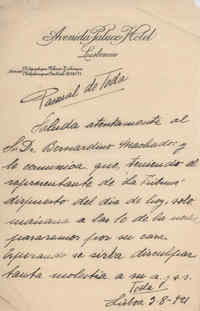 Avenida Palace Hotel
Lisbonne
Pascual de Toda
Saluda atentamente al
Sr. Dr. Bernardino Machado y
le comunica que, teniendo el
representante de "La Tribuna"
dispuesto del dia de hoy, solo
mañana a las 10 de la noche
pasaremos por su casa.
Esperando se sirba disculpar
tanta molestia a su a. y s. s.
Toda
Lisboa 3-8-921